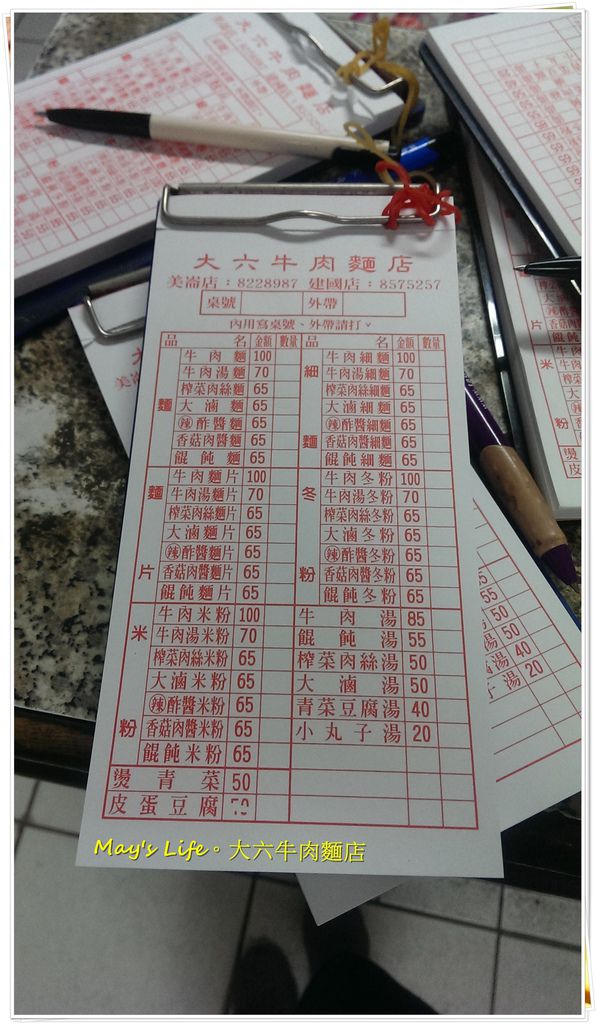 大六牛肉麵店
美崙店：8228987 建國店：8575257
桌號 外帶
內用寫桌號、外帶請打。
品名 金額 數量 品名 金額 數量
麵
牛肉麵 100
牛肉湯麵 70
榨菜肉絲麵 65
大滷麵 65
辣酢醬麵 65
香菇肉醬麵 65
餛飩麵 65
麵片
牛肉麵片 100
牛肉湯麵片 70
榨菜肉絲麵片 65
大滷麵片 65
辣酢醬麵片 65
香菇肉醬麵片 65
餛飩麵片 65
米粉
牛肉米粉 100
牛肉湯米粉 70
榨菜肉絲米粉 65
大滷米粉 65
辣酢醬米粉 65
香菇肉醬米粉 65
餛飩米粉 65
燙青菜 50
皮蛋豆腐
細麵
牛肉細麵 100
牛肉湯細麵 70
榨菜肉絲細麵 65
大滷細麵 65
辣酢醬細麵 65
香菇肉醬細麵 65
餛飩細麵 65
冬粉
牛肉冬粉 100
牛肉湯冬粉 70
榨菜肉絲冬粉 65
大滷冬粉 65
辣酢醬冬粉 65
香菇肉醬冬粉 65
餛飩冬粉 65
牛肉湯 85
餛飩湯 55
榨菜肉絲湯 50
大滷湯 50
青菜豆腐湯 40
小丸子湯 20
May's Life。大六牛肉麵店
大六牛肉麵店